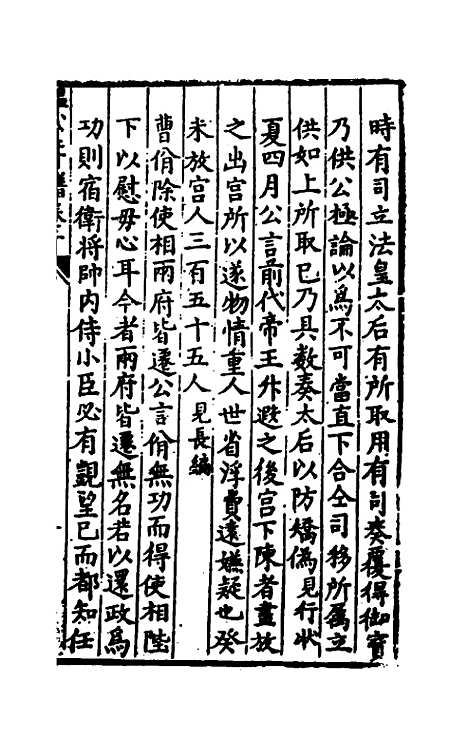 時有司立法皇太后有所取用有司奏覆得御寶
乃供公極論以為不可當直下合仝司移所屬立
供如上所取已乃具數奏太后以防矯偽見行狀
夏四月公言前代帝王升遐之後宮下陳者盡放
之出宮所以遂物情重人世省浮費遠嫌疑也癸
未放宮人三百五十五人見長編
曹佾除使相兩府皆遷公言佾無功而得使相陛
下以慰母心耳今者兩府皆遷無名若以還政為
功則宿衛將帥內侍小臣必有覬望已而都知任